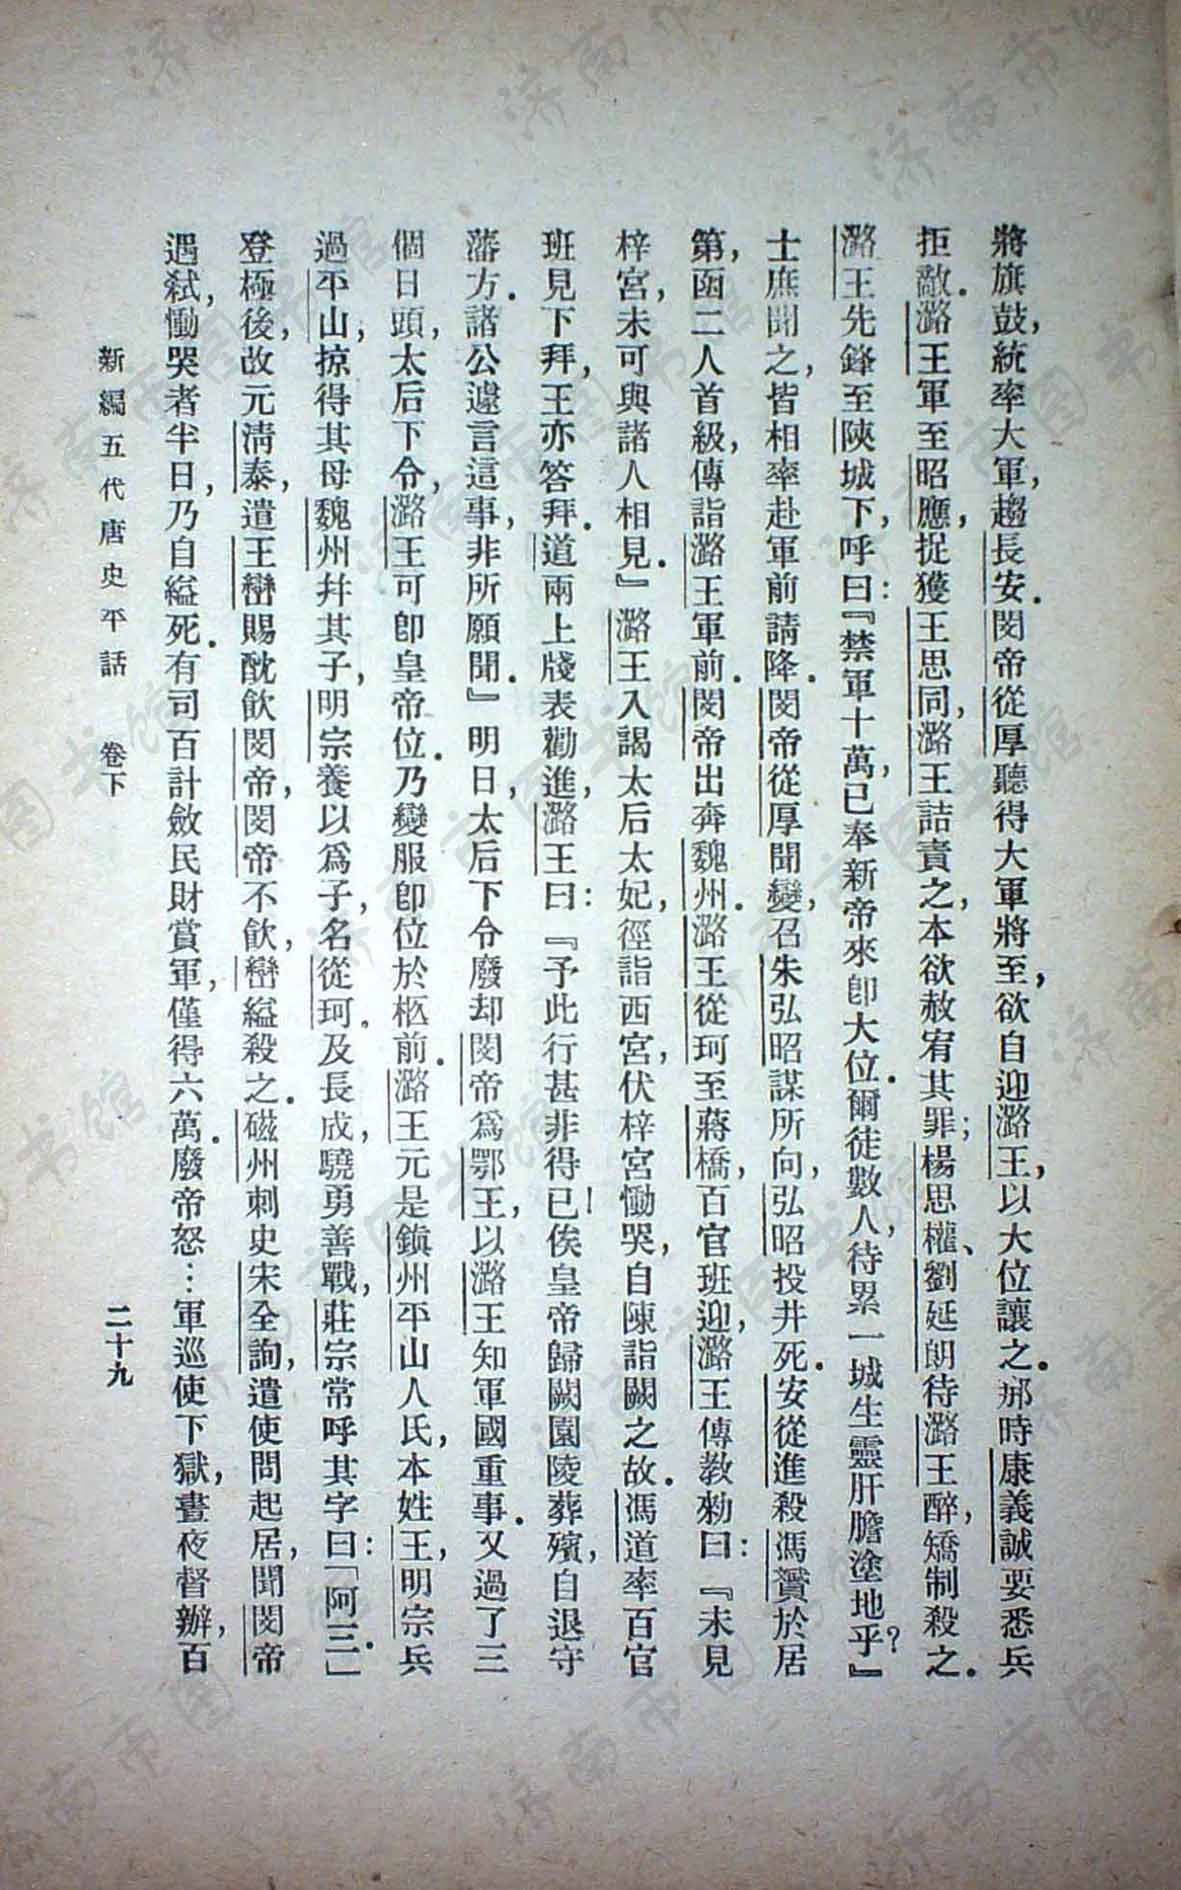 將旗鼓,統率大軍,趨長安.閔帝從厚聽得大軍將至,欲自迎潞王,以大位讓之.那時康義誠要悉兵
拒敵.潞王軍至昭應,捉獲王思同,潞王詰責之,本欲赦宥其罪;楊思權、劉延朗待潞王醉,矯制殺之.
潞王先鋒至陝城下,呼曰:『禁軍十萬,已奉新帝來卽大位.爾徒數人,待累一城生靈肝膽塗地乎?』
士庶聞之,皆相率赴軍前請降.閔帝從厚聞變,召朱弘昭謀所向,弘昭投井死.安從進殺馮贇於居
第,函二人首級,傳詣潞王軍前.閔帝出奔魏州.潞王從珂至蔣橋,百官班迎,潞王傳教勑曰:『未見
梓宮,未可與諸人相見.』潞王入謁太后太妃,徑詣西宮,伏梓宮慟哭,自陳詣闕之故.馮道率百官
班見下拜,王亦答拜.道兩上牋表勸進,潞王曰:『予此行甚非得已!俟皇帝歸闕園陵葬殯,自退守
藩方.諸公遽言這事,非所願聞.』明日,太后下令廢却閔帝爲鄂王,以潞王知軍國重事.又過了三
個日頭,太后下令,潞王可卽皇帝位.乃變服卽位於柩前.潞王元是鎭州平山人氏,本姓王,明宗兵
過平山,掠得其母魏州幷其子,明宗養以爲子,名從珂.及長成,驍勇善戰,莊宗常呼其字曰:「阿三.」
登極後,改元淸泰,遣王巒賜酖飮閔帝,閔帝不飮,巒縊殺之.磁州刺史宋全詢,遣使問起居,聞閔帝
遇弑,慟哭者半日,乃自縊死.有司百計斂民財賞軍,僅得六萬.廢帝怒…軍巡使下獄,晝夜督辦,百
新編五代唐史平話 卷下 二十九
济南市图书馆